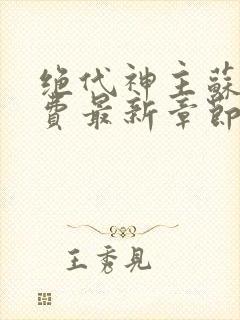 绝代神主蘇
費最新章節
王秀見